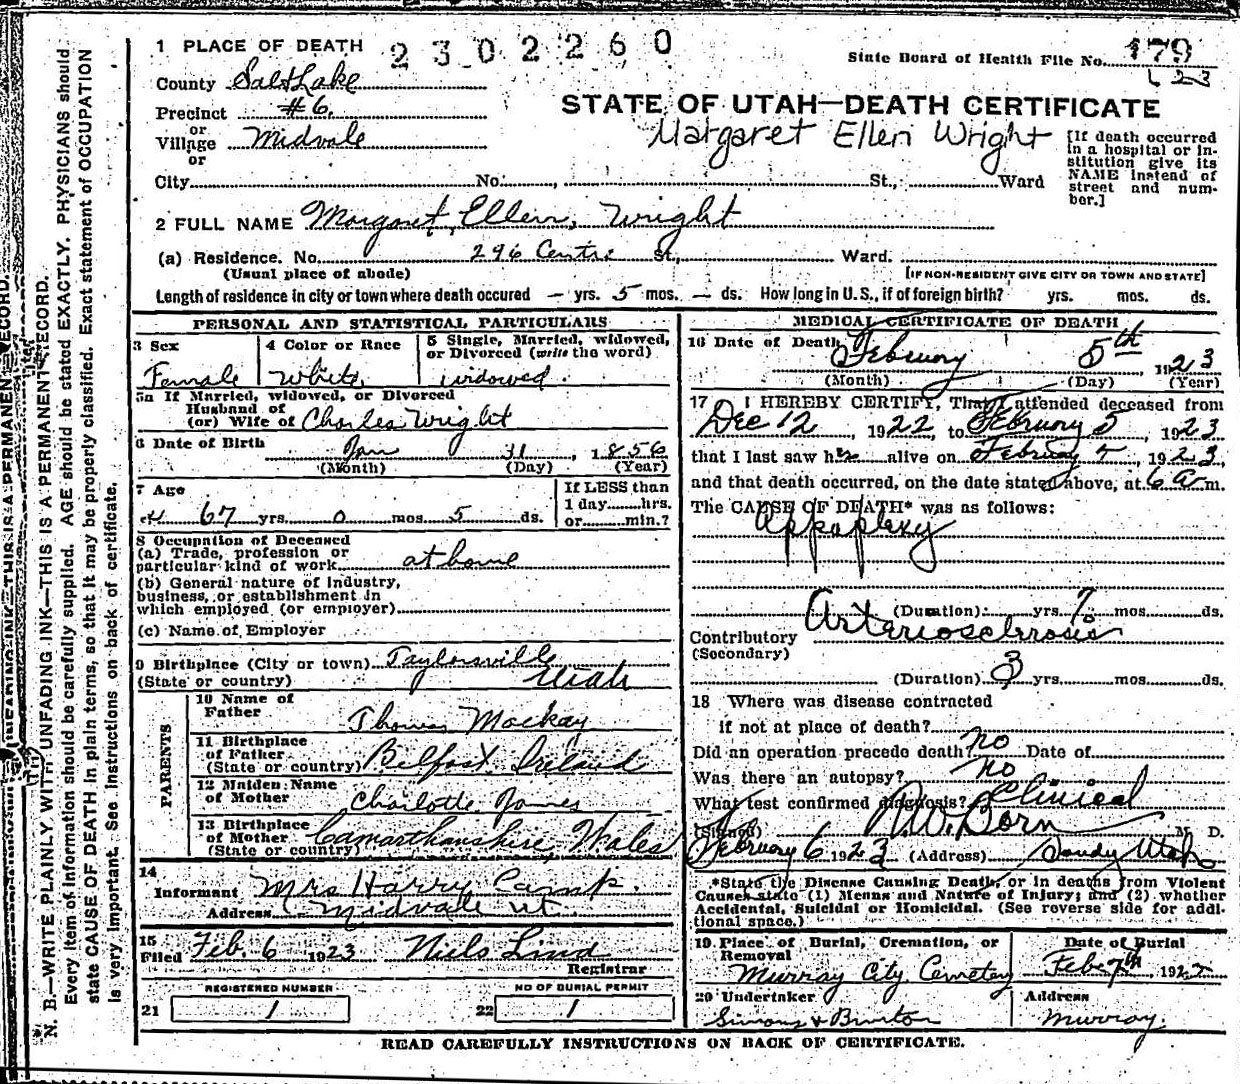 1 PLACE OF DEATH
2302260
State Board of Health File No. 179
County Salt Lake
Precinct #6.
or
Village Midvale
or
STATE OF UTAH—DEATH CERTIFICATE
Margaret Ellen Wright
[If death occurred in a hospital or institution give its NAME instead of street and number.]
City No. , St., Ward
2 FULL NAME Margaret Ellen Wright
(a) Residence. No. 296 Centre St., Ward.
(Usual place of abode)
[IF NON-RESIDENT GIVE CITY OR TOWN AND STATE]
Length of residence in city or town where death occured — yrs. 5 mos. — ds. How long in U. S., if of foreign birth? yrs. mos. ds.
PERSONAL AND STATISTICAL PARTICULARS
3 Sex
Female
4 Color or Race
White
5 Single, Married, widowed, or Divorced (write the word)
widowed.
5a If Married, widowed, or Divorced
Husband of
(or) Wife of Charles Wright
6 Date of Birth Jan 31, 1856
(Month) (Day) (Year)
7 Age
67 yrs. 0 mos. 5 ds.
If LESS than
1 day hrs.
or min.?
8 Occupation of Deceased
(a) Trade, profession or
particular kind of work at home
(b) General nature of industry,
business, or establishment in
which employed (or employer)
(c) Name of Employer
9 Birthplace (City or town) Taylorsville
(State or country) Utah
PARENTS
10 Name of
Father Thomas Mackay
11 Birthplace
of Father
(State or country) Belfast Ireland
12 Maiden Name
of Mother Charlotte James
13 Birthplace
of Mother
(State or country) Camarthanshire Wales
14
Informant Mrs Harry Camp.
Address Midvale Ut.
15
Filed Feb. 6 1923 Niels Lind
Registrar
REGISTERED NUMBER
21 1
NO OF BURIAL PERMIT
22 1
MEDICAL CERTIFICATE OF DEATH
16 Date of Death February 5th, 1923
(Month) (Day) (Year)
17 I HEREBY CERTIFY, That I attended deceased from
Dec 12, 1922, to February 5, 1923
that I last saw her alive on February 5, 1923,
and that death occurred, on the date stated above, at 6 a m.
The CAUSE OF DEATH* was as follows:
Appoplexy
(Duration) yrs. mos. ds.
Contributory Arteriosclerosis
(Secondary)
(Duration) 3 yrs. mos. ds.
18 Where was disease contracted
if not at place of death?
Did an operation precede death no Date of
Was there an autopsy? no
What test confirmed diagnosis? Clinical
(Signed) R.W. Born M. D.
February 6 1923 (Address) Sandy Utah
*State the Disease Causing Death, or in deaths from Violent
Causes state (1) Means and Nature of Injury; and (2) whether
Accidental, Suicidal or Homicidal. (See reverse side for additional space.)
19 Place of Burial, Cremation, or
Removal
Murray City Cemetery
Date of Burial
Feb 7th 192
20 Undertaker
Simons & Burton
Address
Murray.
READ CAREFULLY INSTRUCTIONS ON BACK OF CERTIFICATE.
N. B.—WRITE PLAINLY, WITH UNFADING INK—THIS IS A PERMANENT RECORD.
Every item of information should be carefully supplied. AGE should be stated EXACTLY. PHYSICIANS should
state CAUSE OF DEATH in plain terms, so that it may be properly classified. Exact statement of OCCUPATION
is very important. See instructions on back of certificate.